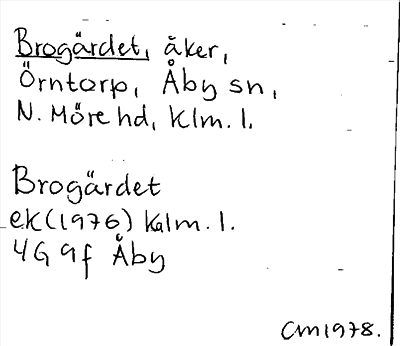 Brogärdet, åker,
Örntorp, Åby sn,
N. Möre hd, Klm. l.
Brogärdet
ek (1976) Kalm. l.
4G 9f Åby
CM1978.